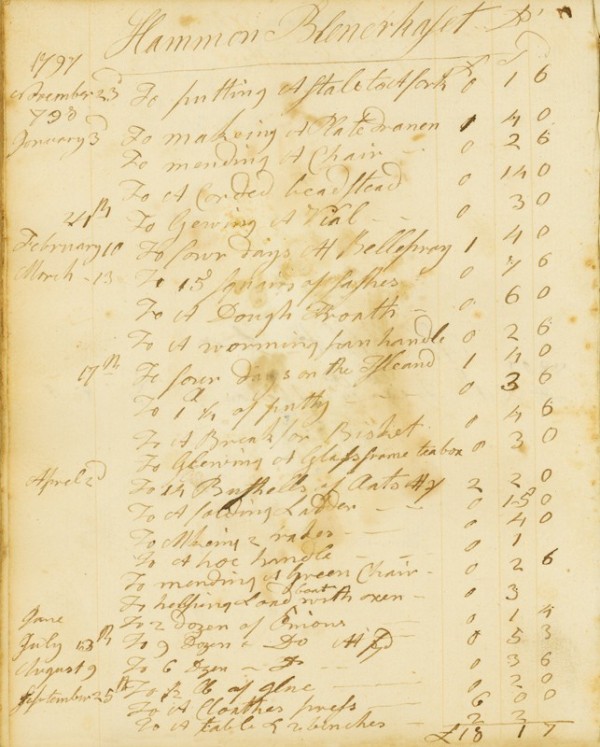 Hammon Blenerhaset Dr
1797
November 23d To putting A stale to A fork 0 1 6
January 3d To making A Plate Dranen 1 4 0
To mending A Chair 0 2 6
To A Corded beadstead 0 14 0
21th To Gewing A Vial 0 3 0
February 10 To four days At Bellepray 1 4 0
March 13 To 15 of sashes 0 7 6
To A Dough Troath 0 6 0
To A worming pan handle 0 2 6
17th To four days on the Island 1 4 0
To 1 of putty 0 3 6
To A Break for Bisket 0 4 6
To Glewing A Glass frame teabox 0 3 0
Aprel 2d To 14 Bushells of Oats 2 2 0
To A folding Ladder 0 15 0
To Making 2 rakes 0 4 0
To A hoe handle 0 1
To mending A Green Chair 0 2 6
To helping Load boat with oxen 0 3
June To 2 dozen of Onions 0 1 4
July 13th To 9 Dozen Do At 0 5 3
August 9 To 6 Dozen Do 0 3 6
September 25th To of glue 0 2 0
To A Cloathes press 6 0 0
To A table & 2 benches 2 2
£18 1 7